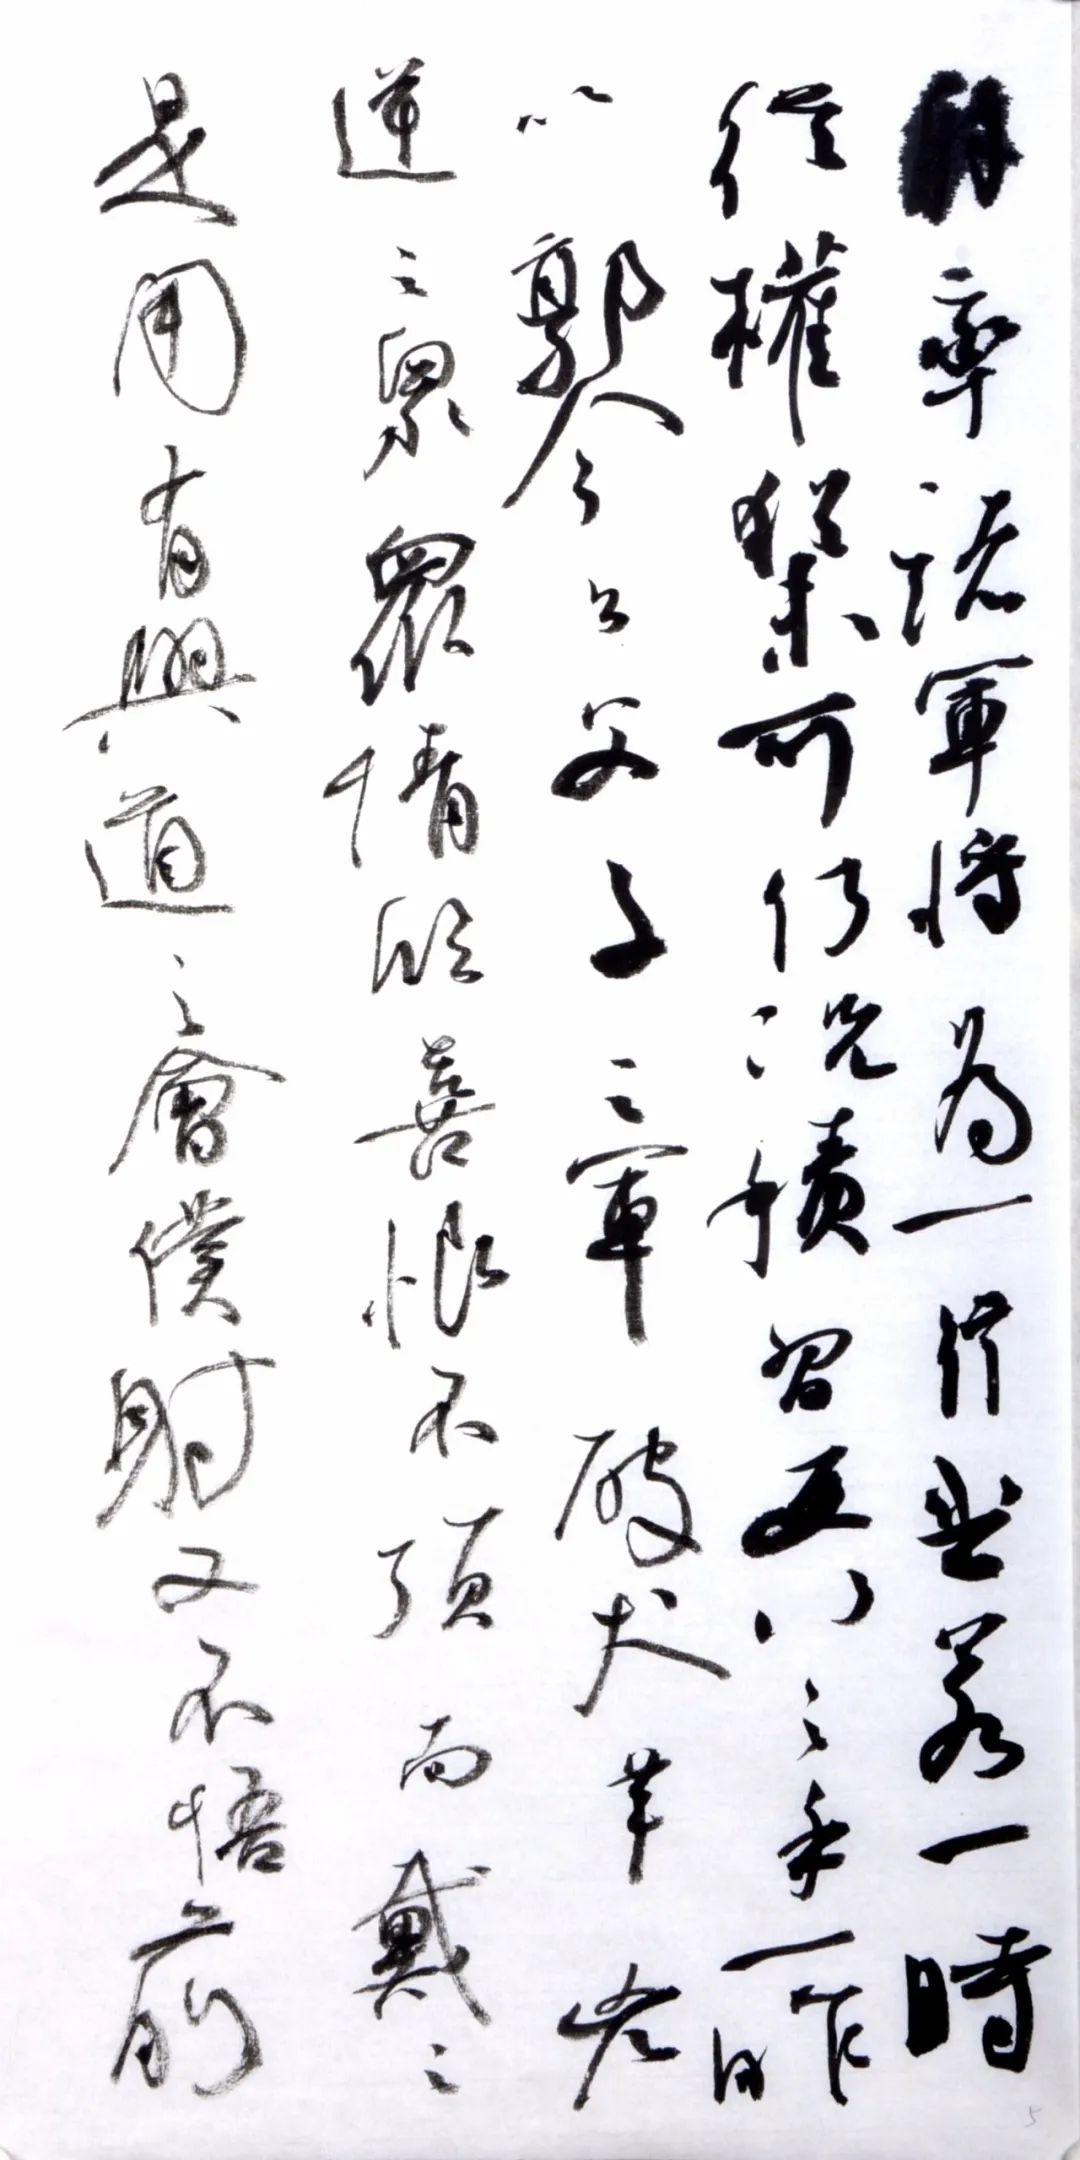 朋率諸軍將為一行坐若一時
從權猶未可何況積習更行之乎一昨
以郭令公父子之軍破犬羊凶
逆之眾眾情欣喜恨不頂而戴之
是用有興道之會僕射又不悟前
5